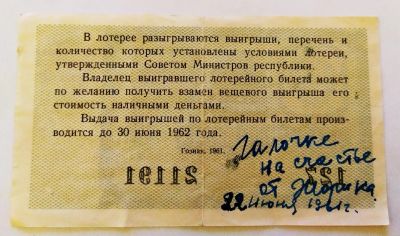 В лотерее разыгрываются выигрыши, перечень и
количество которых установлены условиями лотереи,
утвержденными Советом Министров республики.
Владелец выигравшего лотерейного билета может
по желанию получить взамен вещевого выигрыша его
стоимость наличными деньгами.
Выдача выигрышей по лотерейным билетам произ-
водится до 30 июня 1962 года.
Гознак. 1961.
Галочке
на счастье
от Жорика
22 июня 1961 г.
21191
122